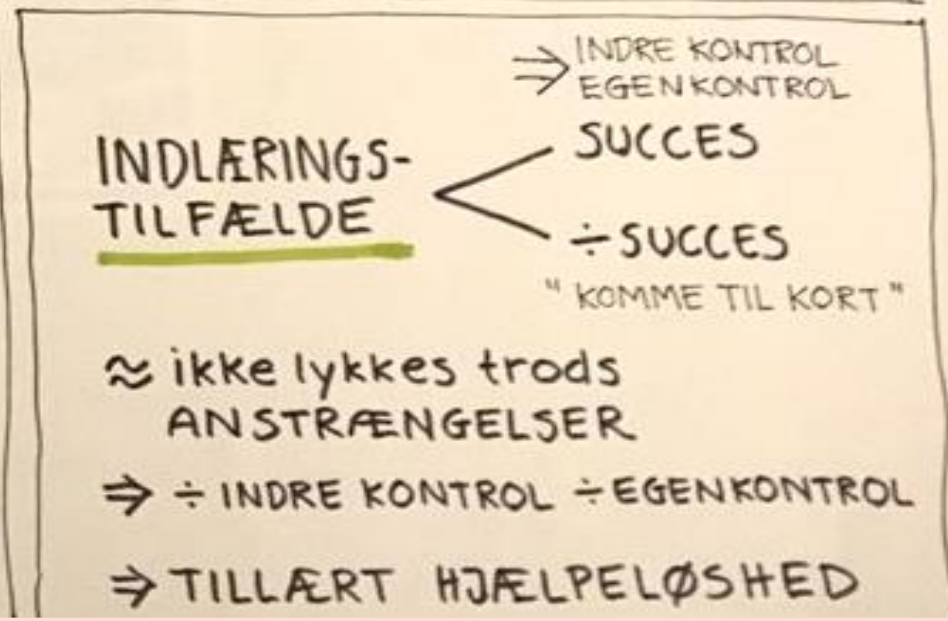 ⇒ INDRE KONTROL
EGENKONTROL
INDLÆRINGS-
TILFÆLDE
SUCCES
÷SUCCES
"KOMME TIL KORT"
≈ ikke lykkes trods
ANSTRÆNGELSER
⇒ ÷ INDRE KONTROL ÷ EGENKONTROL
⇒ TILLÆRT HJÆLPELØSHED